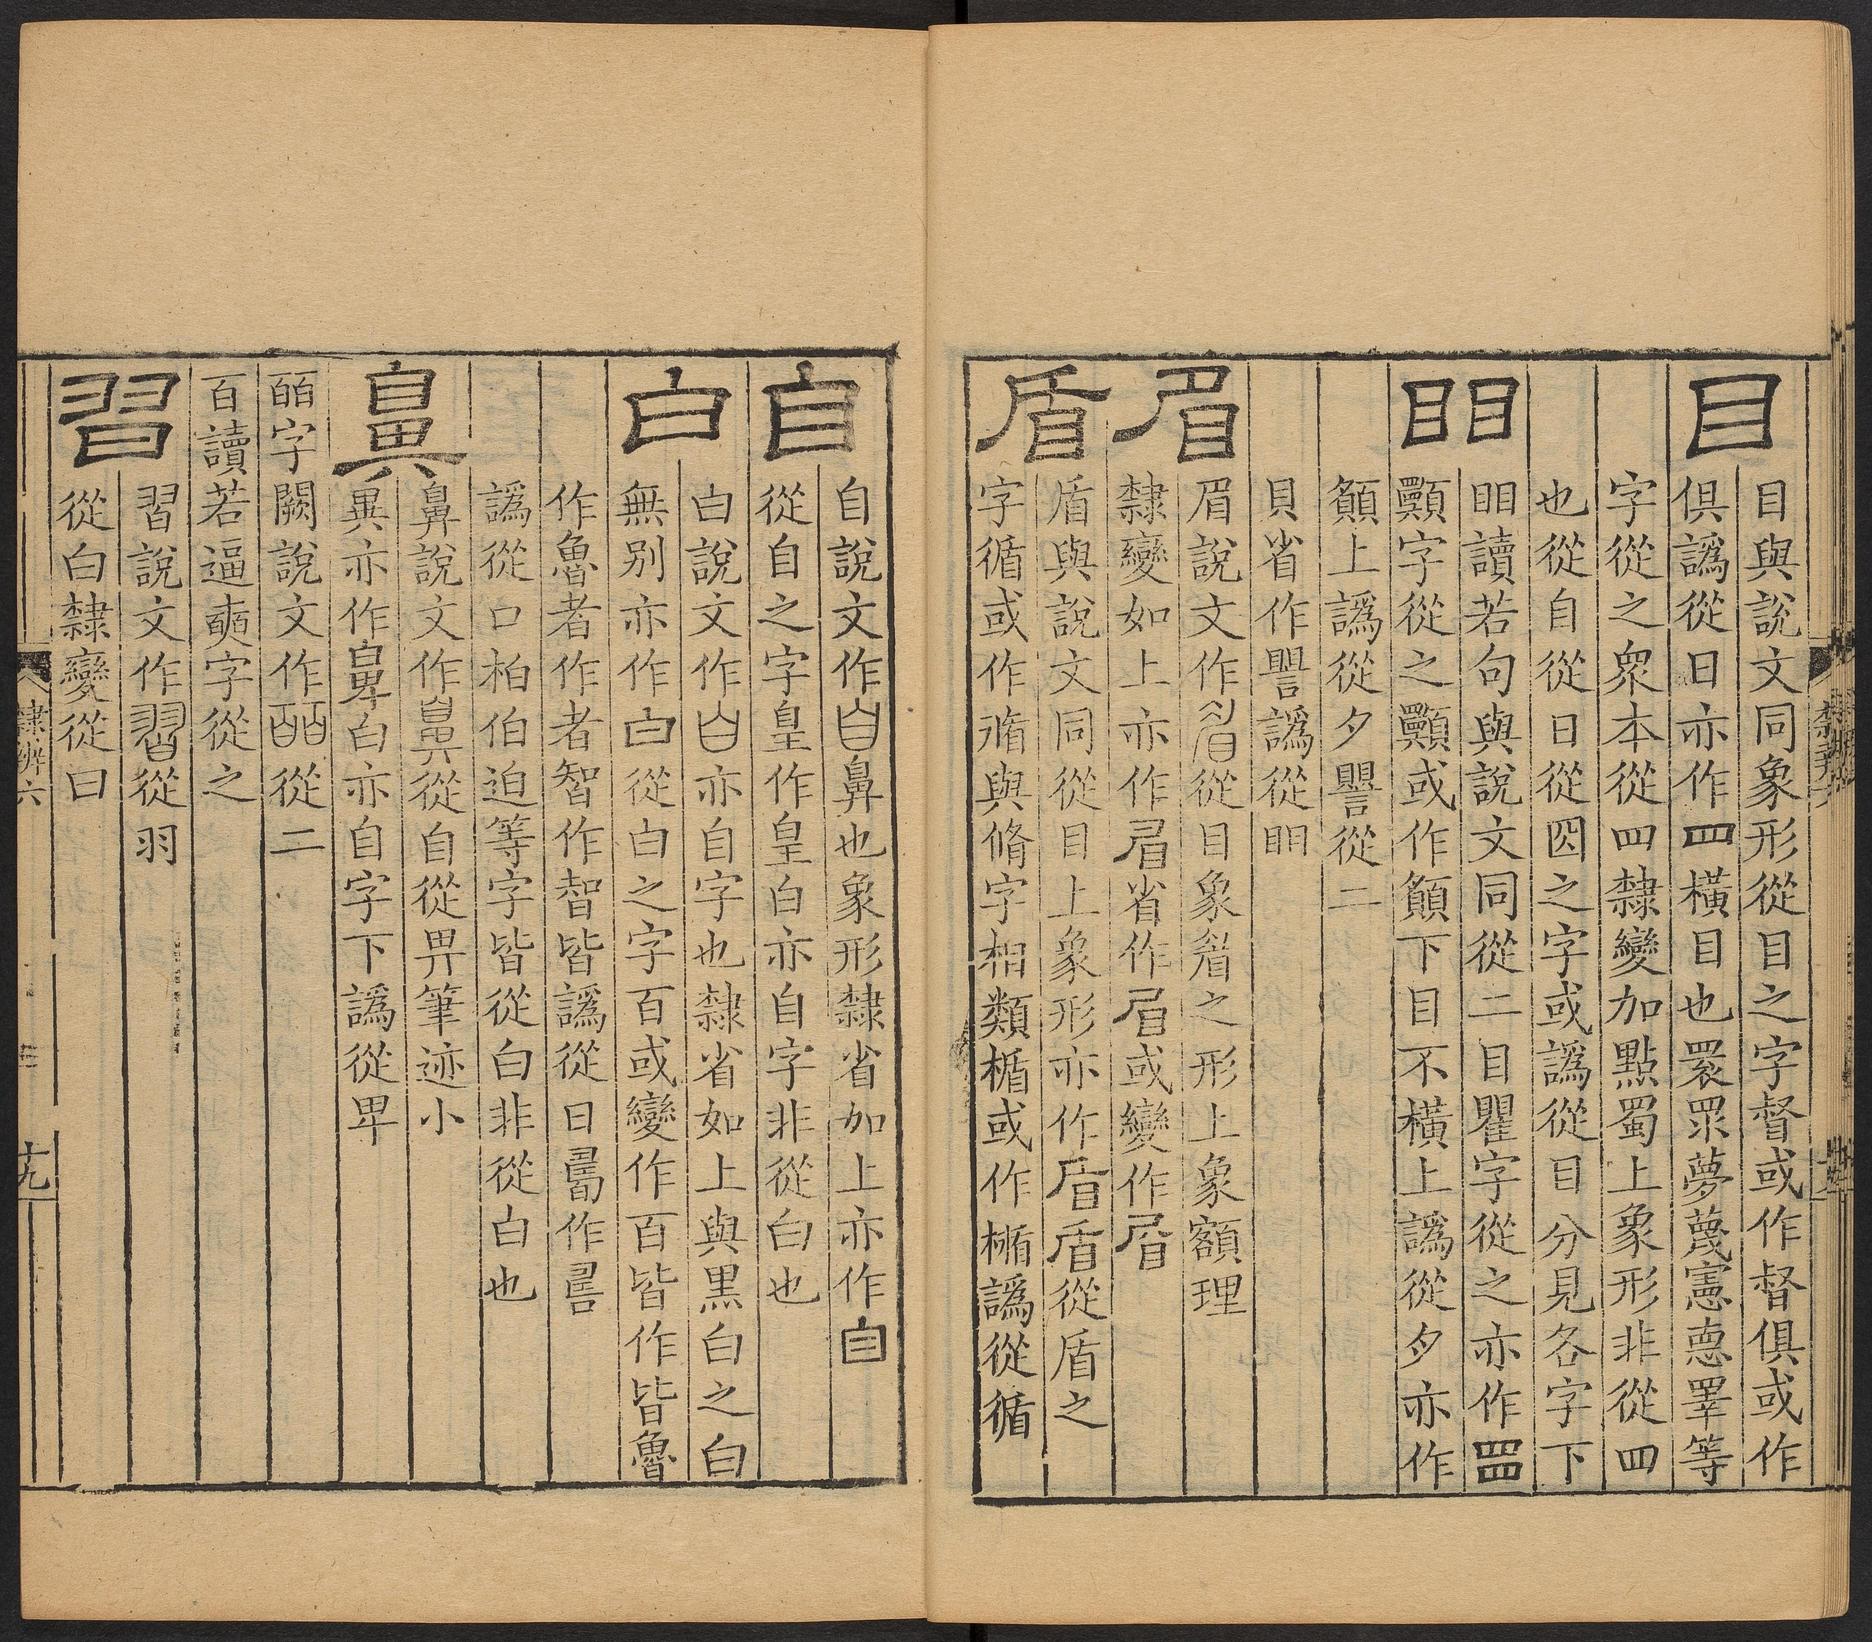 目
目與說文同象形從目之字督或作督俱或作
俱譌從日亦作罒橫目也睘眔夢蔑憲悳睪等
字從之衆本從罒隸變加點蜀上象形非從罒
也從自從日從囟之字或譌從目分見各字下
䀠
䀠讀若句與說文同從二目瞿字從之亦作
顯字從之顯或作顛下目不橫上譌從夕亦作
上譌從夕譻從二
貝省作譻譌從䀠
眉
眉說文作從目象之形上象額理
隸變如上亦作省作或變作
盾
盾與說文同從目上象形亦作盾從盾之
字循或作與脩字相類楯或作譌從循
自
自說文作鼻也象形隸省加上亦作自
從自之字皇作皇白亦自字非從白也
白
白說文作亦自字也隸省如上與黑白之白
無别亦作白從白之字百或變作百皆作皆魯
作魯者作者智作智皆譌從日作
譌從口柏伯迫等字皆從白非從白也
鼻
鼻說文作鼻從自從畀筆迹小
異亦作白亦自字下譌從卑
皕
皕字闕說文作皕從二
百讀若逼奭字從之
習
習說文作習從羽
從白隸變從日
隸辨六
十九